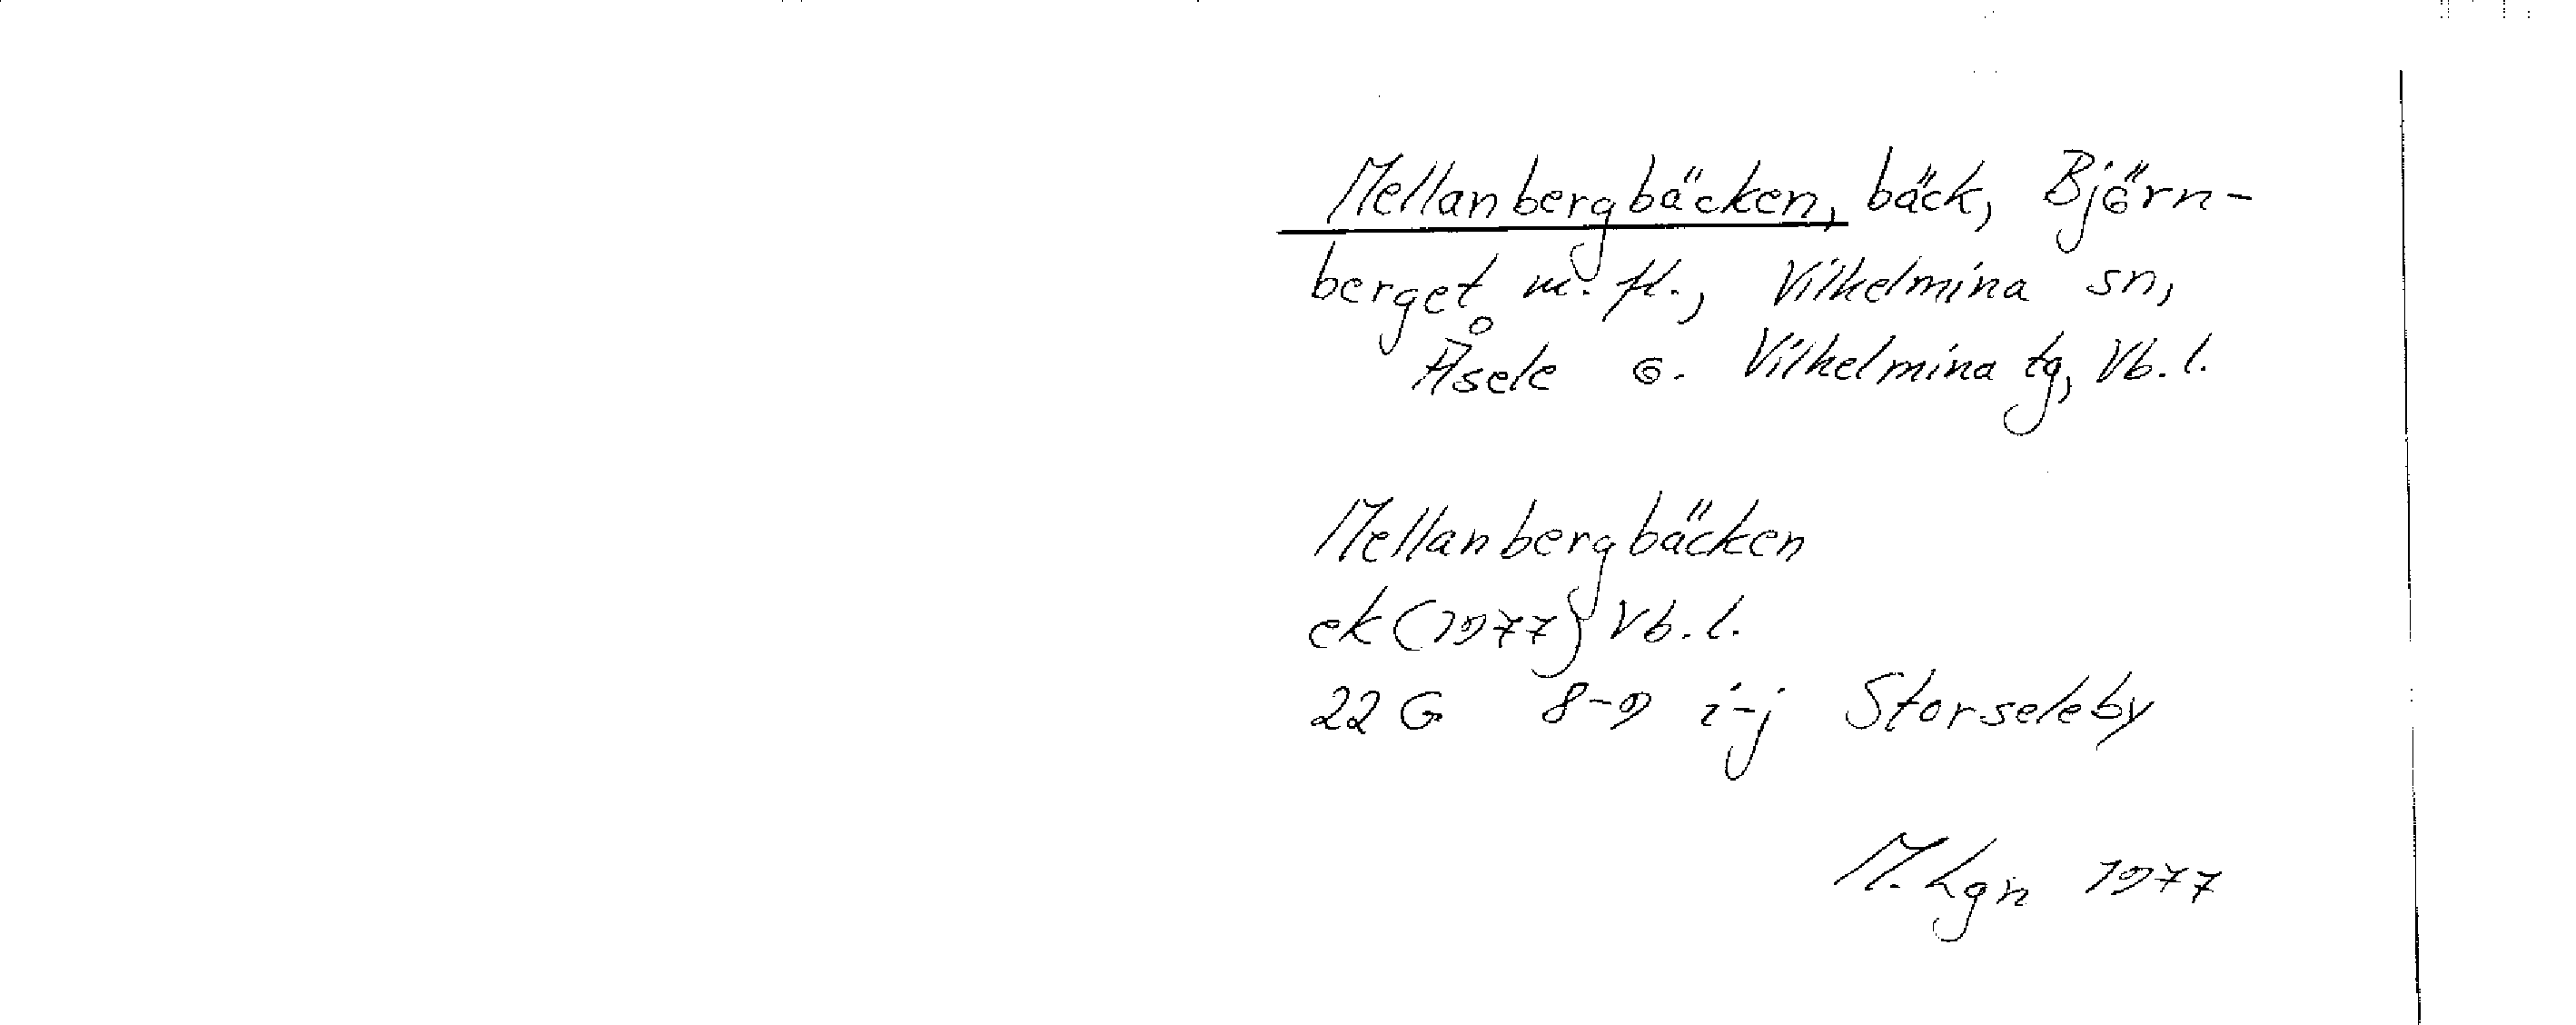 Mellanbergbäcken, bäck, Björn-
berget m. fl., Vilhelmina sn,
Åsele o. Vilhelmina tg, Vb. l.
Mellanbergbäcken
ek (1977) Vb. l.
22 G 8-9 i-j Storseleby
M. Lgn 1977